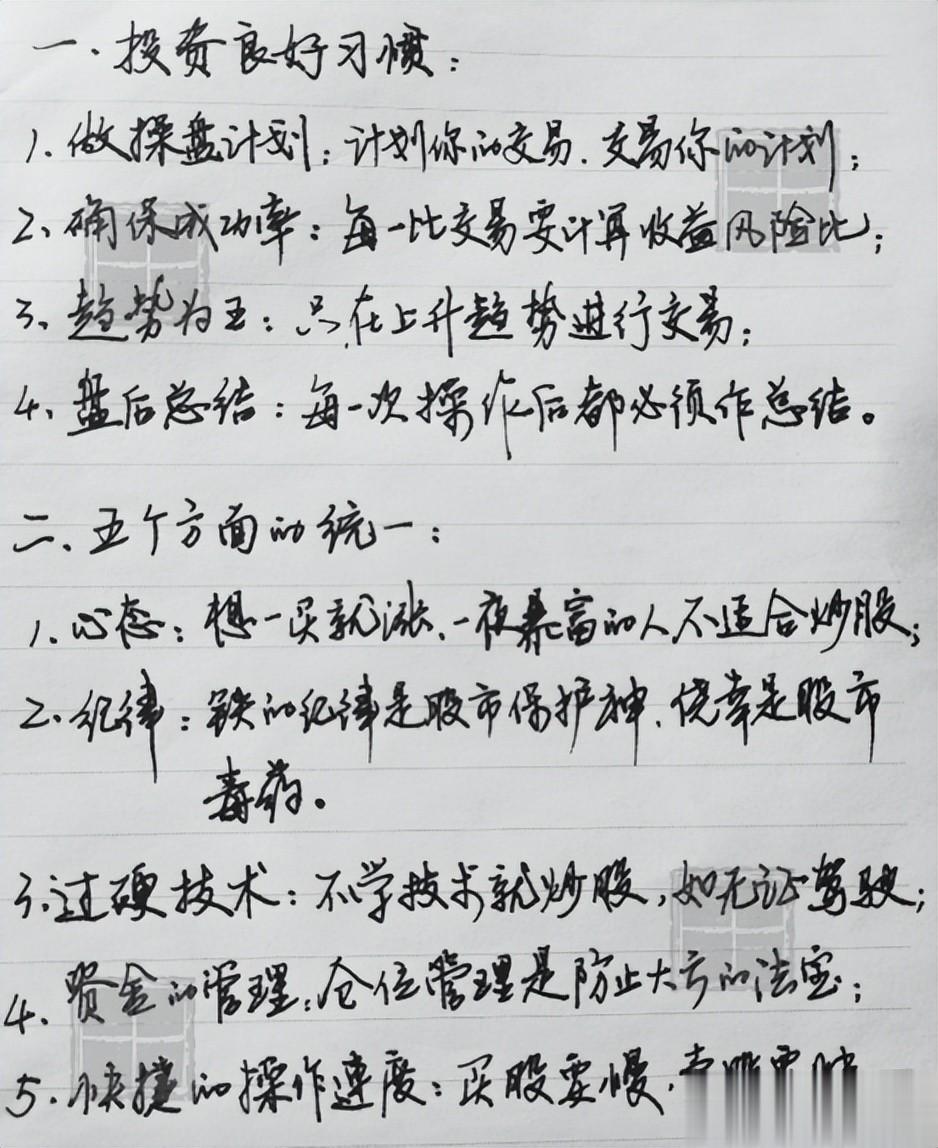 一、投资良好习惯：
1、做操盘计划：计划你的交易、交易你的计划；
2、确保成功率：每一比交易要计算收益风险比；
3、趋势为王：只在上升趋势进行交易；
4、盘后总结：每一次操作后都必须作总结。
二、五个方面的统一：
1、心态：想一买就涨、一夜暴富的人不适合炒股；
2、纪律：铁的纪律是股市保护神、侥幸是股市
毒药。
3、过硬技术：不学技术就炒股，如无证驾驶；
4、资金的管理：仓位管理是防止大亏的法宝；
5、快捷的操作速度：买股要慢，